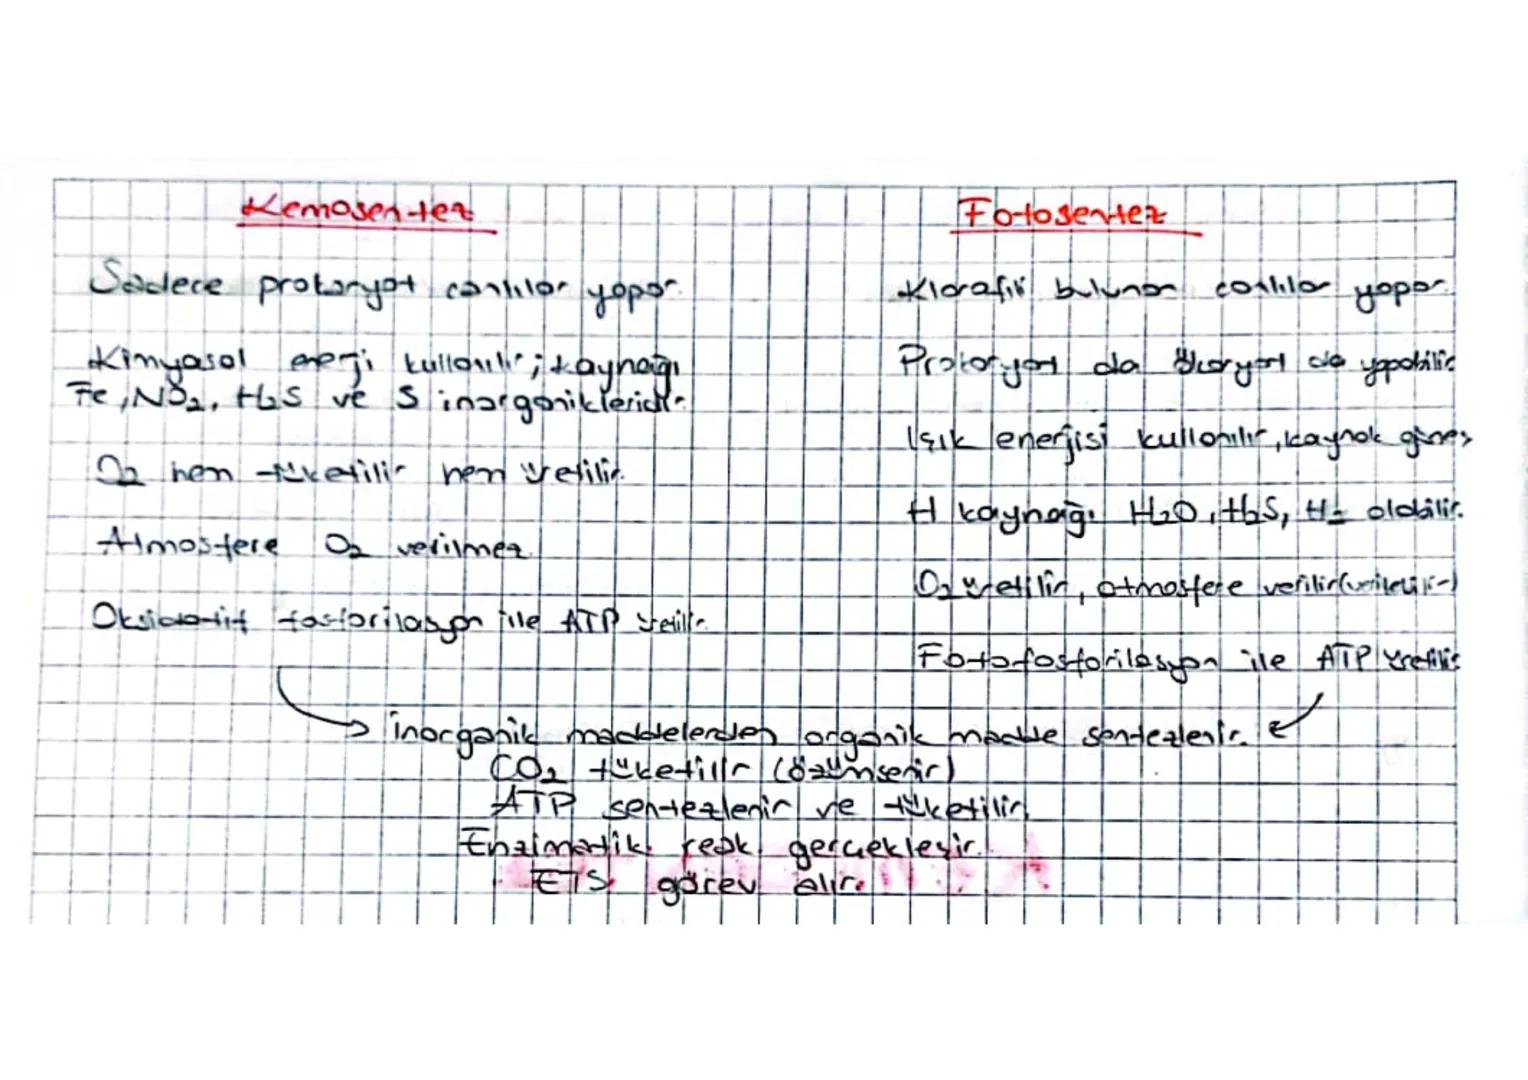 Kemosentez
Sadece prokaryot canlılar yapar.
Kimyasal enerji kullanılır; kaynağı
Fe, NO2, H2S ve S inorganikleridir.
O2 hem tüketilir hem üretilir.
Atmosfere O2 verilmez.
Oksidatif fosforilasyon ile ATP üretilir.
Fotosentez
Klorofili bulunan canlılar yapar.
Prokaryot da ökaryot da yapabilir
Işık enerjisi kullanılır, kaynak güneş
H kaynağı H2O, H2S, H2 olabilir.
O2 üretilir, atmosfere verilir
Fotofosforilasyon ile ATP üretilir
inorganik maddelerden organik madde sentezlenir.
CO2 tüketilir (özümsenir)
ATP sentezlenir ve tüketilir.
Enzimatik reak. gerçekleşir.
ETS görev alır.